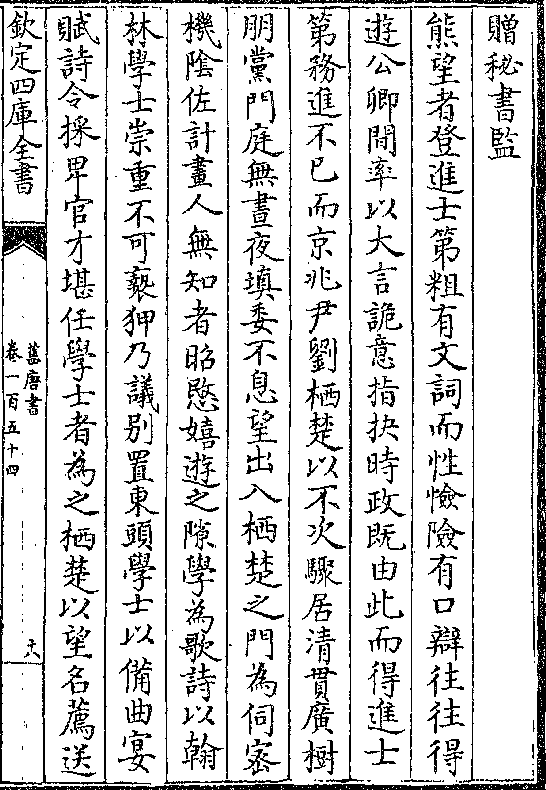 贈秘書監
熊望者登進士第粗有文詞而性憸險有口辯往往得
遊公卿間率以大言詭意指抉時政既由此而得進士
第務進不已而京兆尹劉栖楚以不次驟居清貫廣樹
朋黨門庭無晝夜填委不息望出入栖楚之門為伺密
機陰佐計畫人無知者昭愍嬉遊之隙學為歌詩以翰
林學士崇重不可褻狎乃議別置東頭學士以備曲宴
賦詩令採卑官才堪任學士者為之栖楚以望名薦送
欽定四庫全書
舊唐書
卷一百五十四